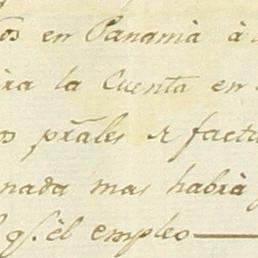 os en Panamà à
ra la Cuenta en
os prâles & factu
nada mas habrà
qe. èl empleo